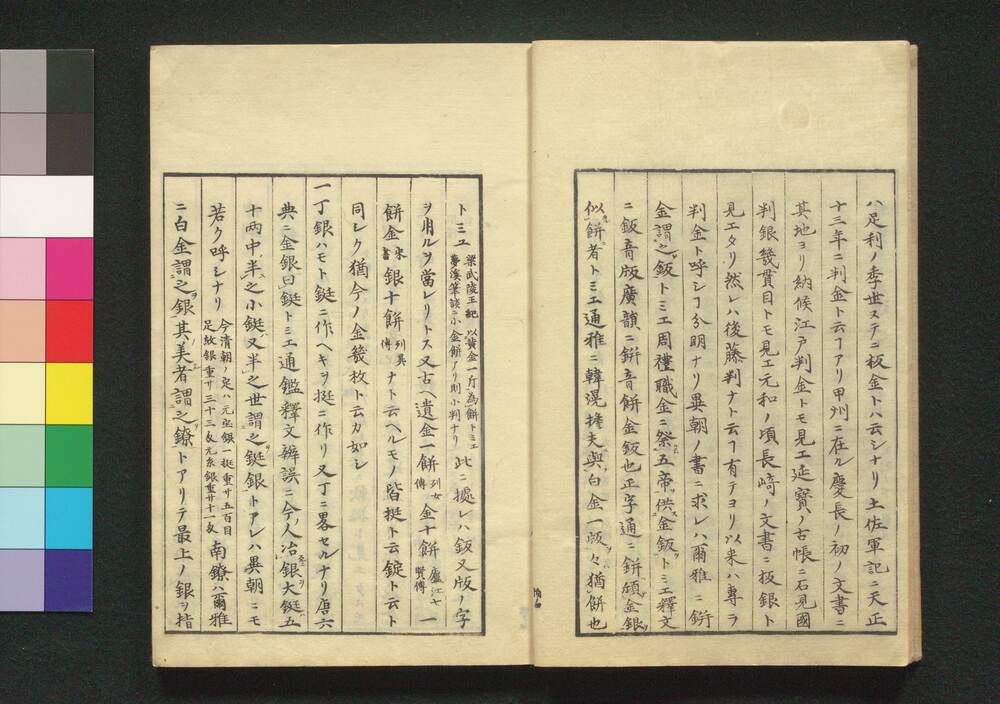 ハ足利ノ季世ステニ板金トハ云シナリ土佐軍記ニ天正
十三年ニ判金ト云フアリ甲州ニ在ル慶長ノ初ノ文書ニ
其地ヨリ納候江戸判金トモ見エ延寳ノ古帳ニ石見國
判銀幾貫目トモ見エ元和ノ頃長﨑ノ文書ニ板銀ト
見エタリ然レハ後藤判ナト云フ有テヨリ以来ハ專ラ
判金ト呼シヿ分明ナリ異朝ノ書ニ求レハ爾雅ニ鉼
金謂之鈑トミエ周禮職金ニ祭五帝供金鈑トミエ釋文
ニ鈑音版廣韻ニ鉼音餅金鈑也正字通ニ鉼傾金銀
似餅者トミエ通雅ニ韓滉擔夫與白金一版々猶餅也
トミユ 梁武陵王紀以黄金一斤為餅トミエ 夢溪筆談ニ小金餅アリ則小判ナリ 此ニ據レハ鈑又版ノ字
ヲ用ルヲ當レリトス又古ヘ遺金一餅 列女傳 金十餅 廬江七賢傳 一
餅金 宋書 銀十餅 列異傳 ナト云ヘルモノ皆挺ト云錠ト云ト
同シク猶今ノ金幾枚ト云カ如シ
一丁銀ハモト鋌ニ作ヘキヲ挺ニ作リ又丁ニ畧セルナリ唐六
典ニ金銀曰鋌トミエ通鑑釋文辨誤ニ今人冶銀大鋌五
十两中半之小鋌又半之世謂之鋌銀トアレハ異朝ニモ
若ク呼シナリ 今清朝ノ定ハ元宝銀一挺重サ五百目 足紋銀重サ三十三匁元糸銀重サ十一匁 南鐐ハ爾雅
ニ白金謂之銀其美者謂之鐐トアリテ最上ノ銀ヲ指